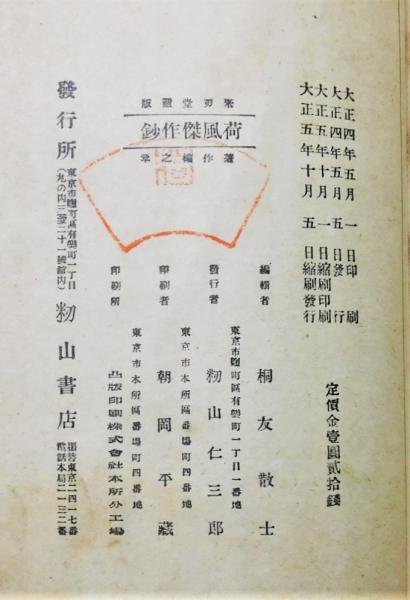 大正四年五月一日印刷
大正四年五月五日發行
大正五年十月一日縮刷印刷
大正五年十月五日縮刷發行
定價金壹圓貳拾錢
荷風傑作鈔
著作權之章
編輯者 桐友散士
東京市麴町區有樂町一丁目一番地
發行者 籾山仁三郎
東京市本所區番場町四番地
印刷者 朝岡平藏
東京市本所區番場町四番地
印刷所 凸版印刷株式會社本所分工場
發行所 東京市麴町區有樂町一丁目
(丸の內三菱二十一號館內) 籾山書店
振替東京二四一七番
電話本局二一三二番